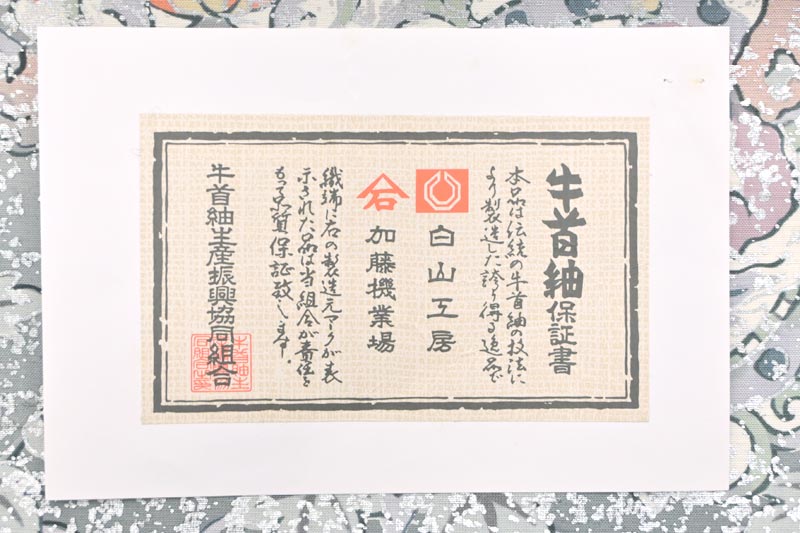 牛首紬保証書
本品は伝統の牛首紬の技法に
より製造した誇り得る逸品で
白山工房
加藤機業場
織姉に右の製造元マークが表
示された品は当組合が責任を
もって品質保証致します。
牛首紬生産振興協同組合